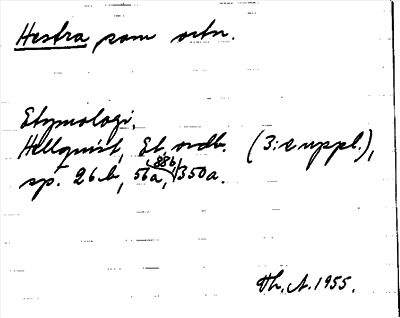 Hestra som ortn.
Etymologi.
Hellquist, Et. ordb. (3:e uppl.),
sp. 26 b, 56 a, 88 b, 350 a.
Th. A. 1955.